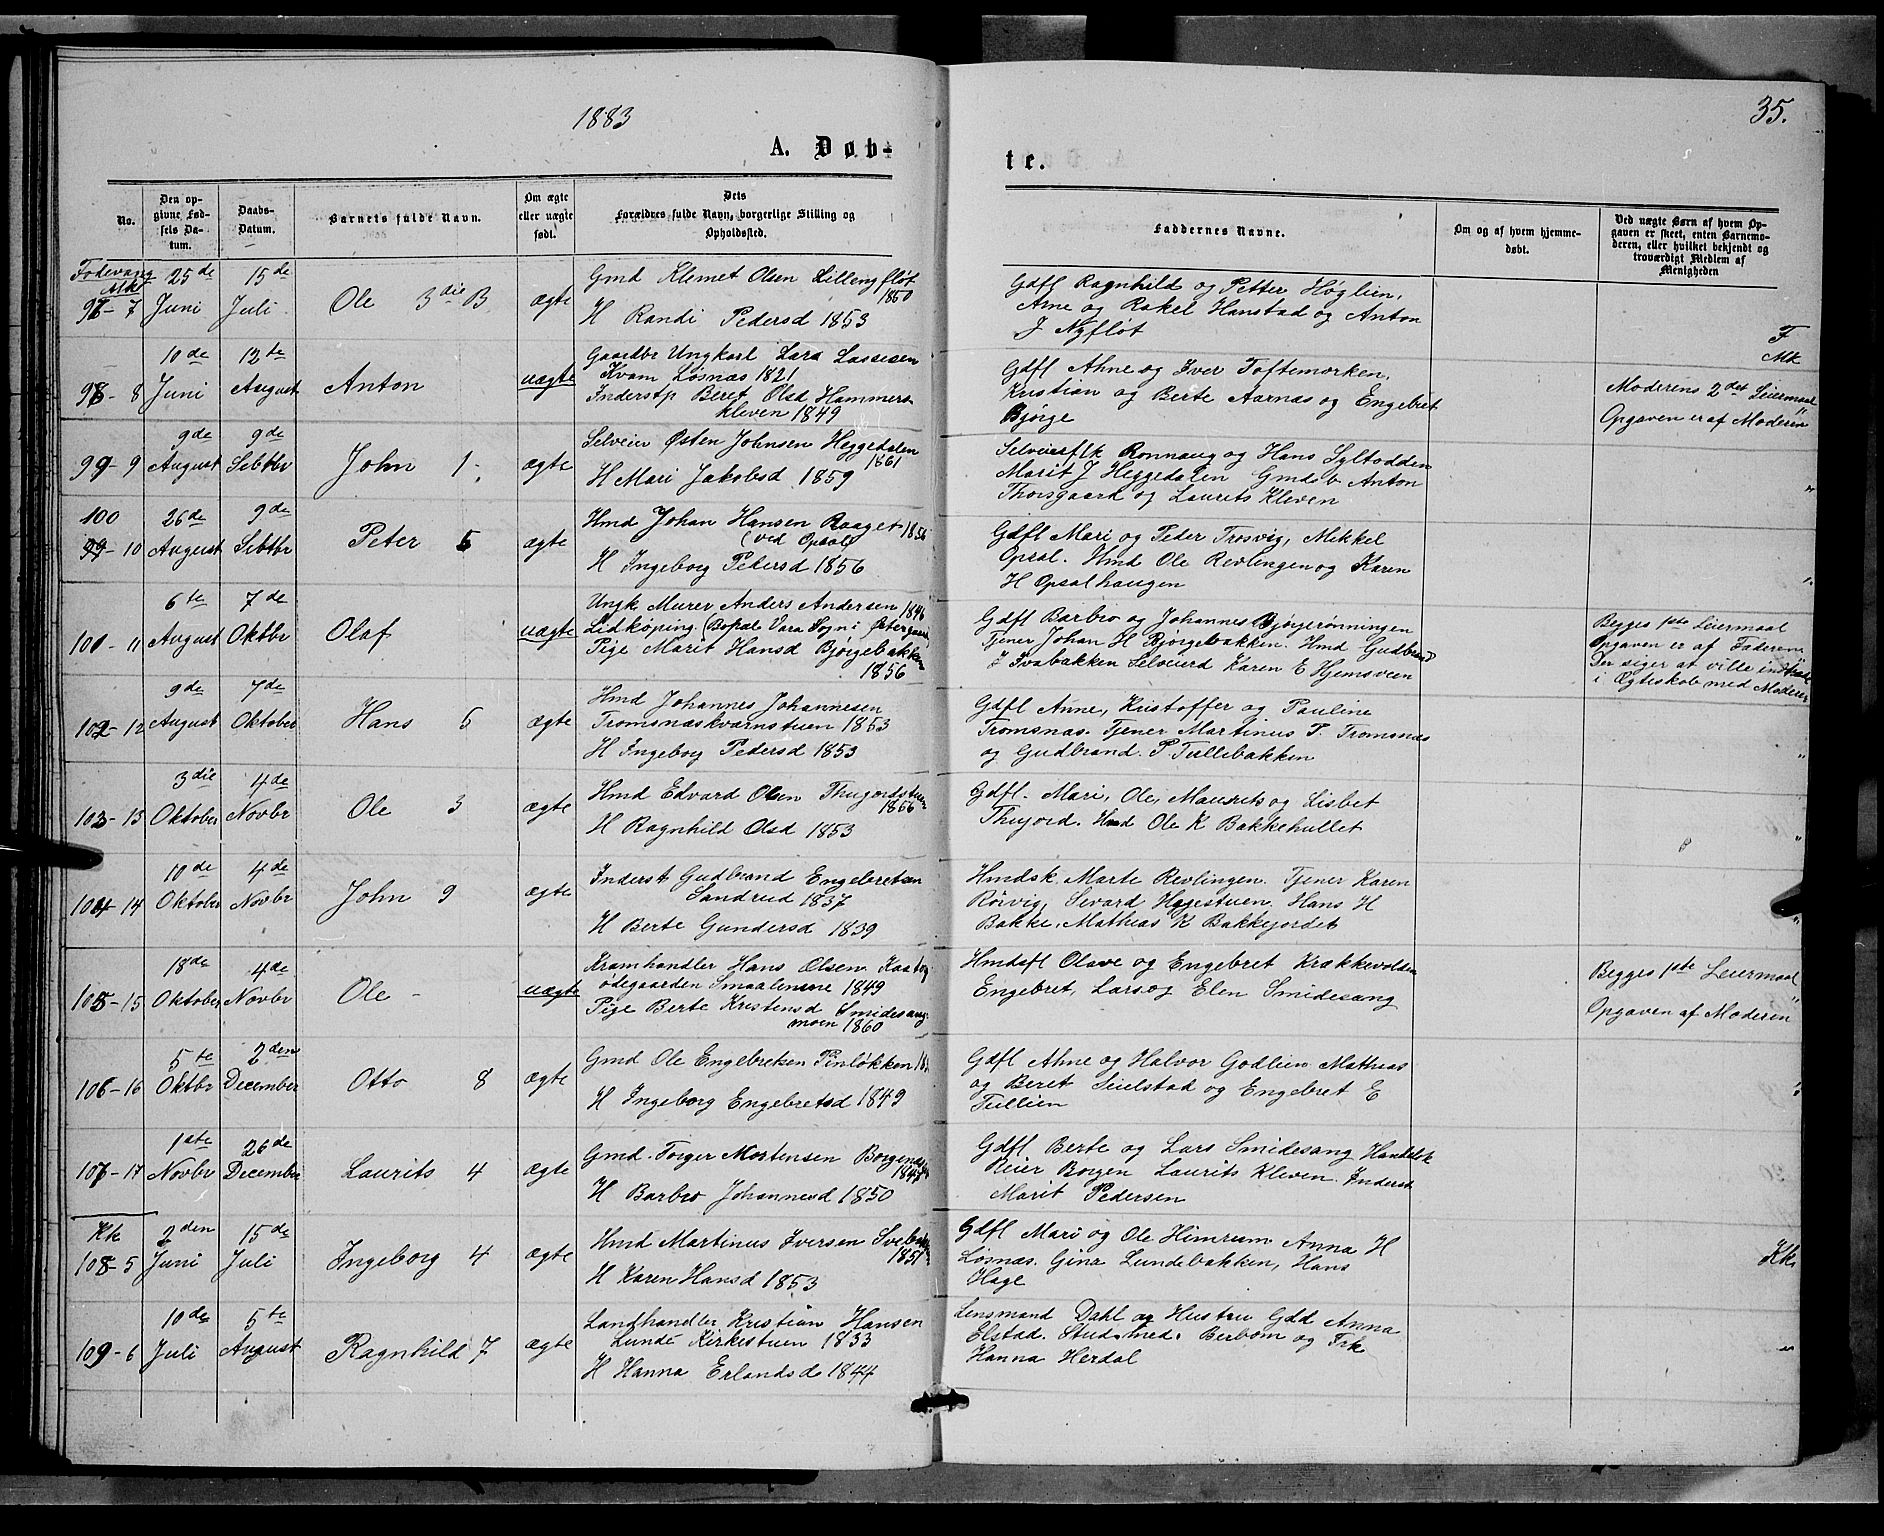 1883
35.
A. Døb-
te.
No.
Den op-
givne Fød-
sels Da-
tum.
Daabs-
Datum.
Barnets fulde Navn.
Om ægte
eller uægte
født.
Dets
Forældres fulde Navn, borgerlige Stilling og
Opholdssted.
Faddernes Navne.
Om og af hvem hjemme-
døbt.
Ved uægte Børn af hvem Op-
gaven er skeet, enten Barnemo-
deren, eller hvilket bekjendt og
troværdigt Medlem af
Menigheden
Fodevang
Mk
97-7
25de
Juni
15de
Juli
Ole 3die B
ægte
Gmd Klemet Olsen Lillengfløt
1850
H Randi Pedersd 1853
Gdfl Ragnhild og Petter Høglien,
Arne og Rakel Hanstad og Anton
J Nyfløt
F
Mk
98-8
10de
Juni
12te
August
Anton
uægte
Gaardbr Ungkarl Lars Lassesen
Kvam Løsnæs 1821
Inderstp Beret Olsd Hammers
kleven 1849
Gdfl Ahne og Iver Toftemorken,
Kristian og Berte Aarnæs og Engebret
Bjørge
Moderens 2det Leiermaal
Opgaven er af Moderen "
99-9
9de
August
9de
Sebtbr
John 1.
ægte
Selveier Østen Johnsen Heggedalen
1861
H Mari Jakobsd 1859
Selveierflk Ronnaug og Hans Syltodden
Marit J Heggedalen Gmdsb Anton
Thorsgaard og Laurits Kleven
"
100
99-10
26de
August
9de
Sebtbr
Peter 5
ægte
Hmd Johan Hansen Baaget 1856
(ved Opsal)
H Ingeborg Pedersd 1856
Gdfl Mari og Peder Trosvig, Mikkel
Opsal. Hmd Ole Revlingen og Karen
H Opsalhaugen
"
101-11
6te
August
7de
Oktbr
Olaf
uægte
Ungk Murer Anders Andersen 1846
Lidkøping (Bopæl Vara Sogn i Østergaard)
Pige Marit Hansd Bjørgebakken
1856
Gdfl Barbro og Johannes Bjørgerønningen
Tjener Johan H Bjørgebakken. Hmd Gudbrand
J Ivabakken Selveierd Karen E Hjemsveen
Begges 1ste Leiermaal
Opgaven er af Faderen
Der siger at ville indtræde
i Ægteskab med Moderen
102-12
9de
August
7de
Oktober
Hans 5
ægte
Hmd Johannes Johannesen
Tromsnæskvernstuen 1853
H Ingeborg Pedersd 1853
Gdfl Anne, Kristoffer og Pauline
Tromsnæs. Tjener Martinus P. Tromsnæs
og Gudbrand. P Tullebakken
"
103-13
3die
Oktober
4de
Novbr
Ole 3
ægte
Hmd Edvard Olsen Thujordstuen
1856
H Ragnhild Olsd 1853
Gdfl. Mari, Ole, Maurits og Lisbet
Thujord. Hmd Ole K Bakkehullet
"
104-14
10de
Oktober
4de
Novbr
John 9
ægte
Inderst Gudbrand Engebretsen
Sandrud 1837
H Berte Gundersd 1839
Hmdsk. Marte Revlingen. Tjener Karen
Rørvig, Sevard Hggestuen. Hans H
Bakke. Mathias K Bakkejordet
"
105-15
18de
Oktober
4de
Novbr
Ole -
uægte
Kramhandler Hans Olsen Kaabog
ødegaarden Smaalenene 1849
Pige Berte Kristensd Smidesang-
moen 1860
Hmdsfl Olave og Engebret Krækkevolden
Engebret, Lars og Elen Smidesang
Begges 1ste Leiermaal
Opgaven af Moderen "
106-16
5te
Oktbr
2den
December
Otto 8
ægte
Gmd Ole Engebretsen Pinløkken
H Ingeborg Engebretsd 1849
Gdfl Ahne og Halvor Godlien Mathias
og Beret Seielstad og Engebret E
Tullien
"
107-17
1ste
Novbr
26de
December
Laurits 4
ægte
Gmd. Torger Mortensen Borgen
1847
H Barbro Johannesd 1850
Gdfl Berte og Lars Smidesang Handelsk
Reier Borgen Laurits Kleven. Inderst
Marit Pedersen
Kk
108-5
2den
Juni
15de
Juli
Ingeborg 4
ægte
Hmd Martinus Iversen
1851
H Karen Hansd 1853
Gdfl Mari og Ole Himrum Anna H
Løsnæs. Gina Lundebakken, Hans
Hage
Kk
109-6
10de
Juli
5te
August
Ragnhild 7
ægte
Landhandler Kristian Hansen
Lunde Kirkestuen 1833
H Hanna Erlandsd 1844
Lensmand Dahl og Hustru Gdd Anna
Elstad. Stud. med. Berbom og Frk
Hanna Herdal
"